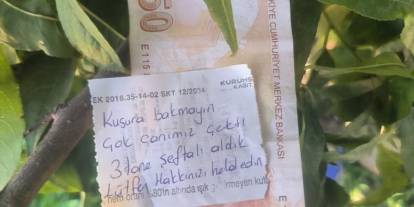 50
E 115
TÜRKİYE CUMHURİYET MERKEZ BANKASI
EK 2016.35-14-02 SKT 12/20
KURUHS
KAĞIT
Kusura bakmayın
Çok canımız çekti
3 tane şeftali aldık
Lütfen Hakkınızı helal edin
altında ışık
irmeyen kut